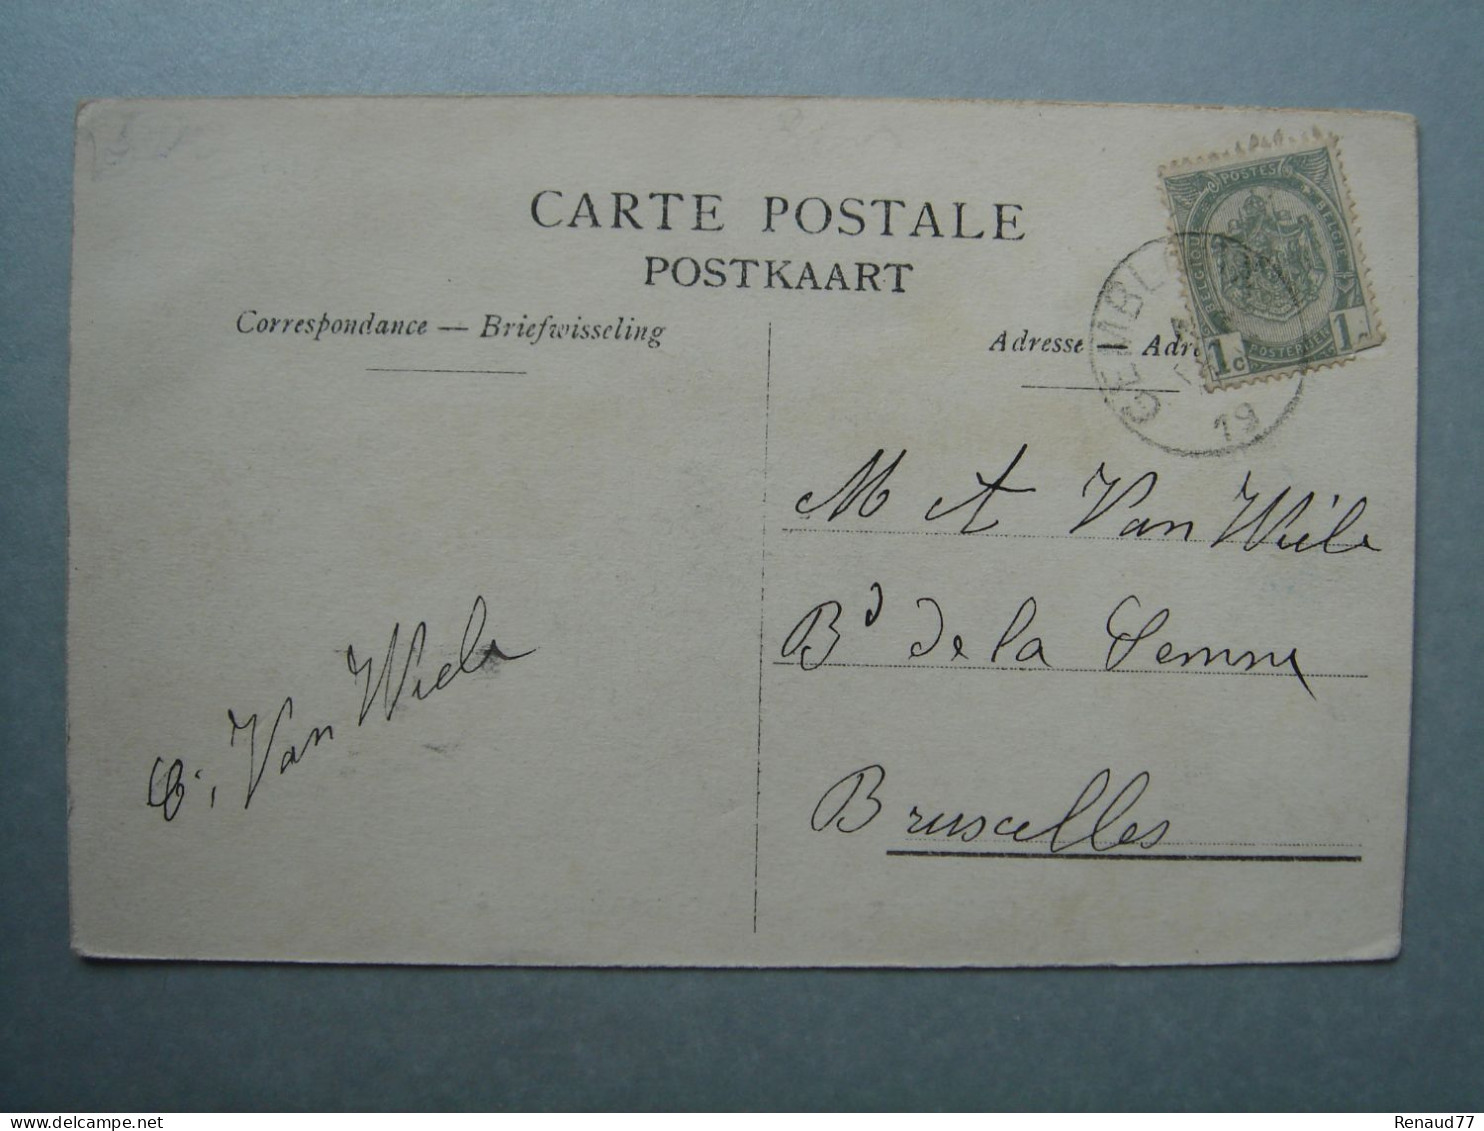 CARTE POSTALE
POSTKAART
Correspondance — Briefwisseling
Adresse — Adr
POSTES
BELGIQUE
BELGIË
POSTERIJEN
1c
1c
GEMBL
19
M A Van Wiele
Bd de la Senne
Bruxelles
Van Wiele
Renaud77